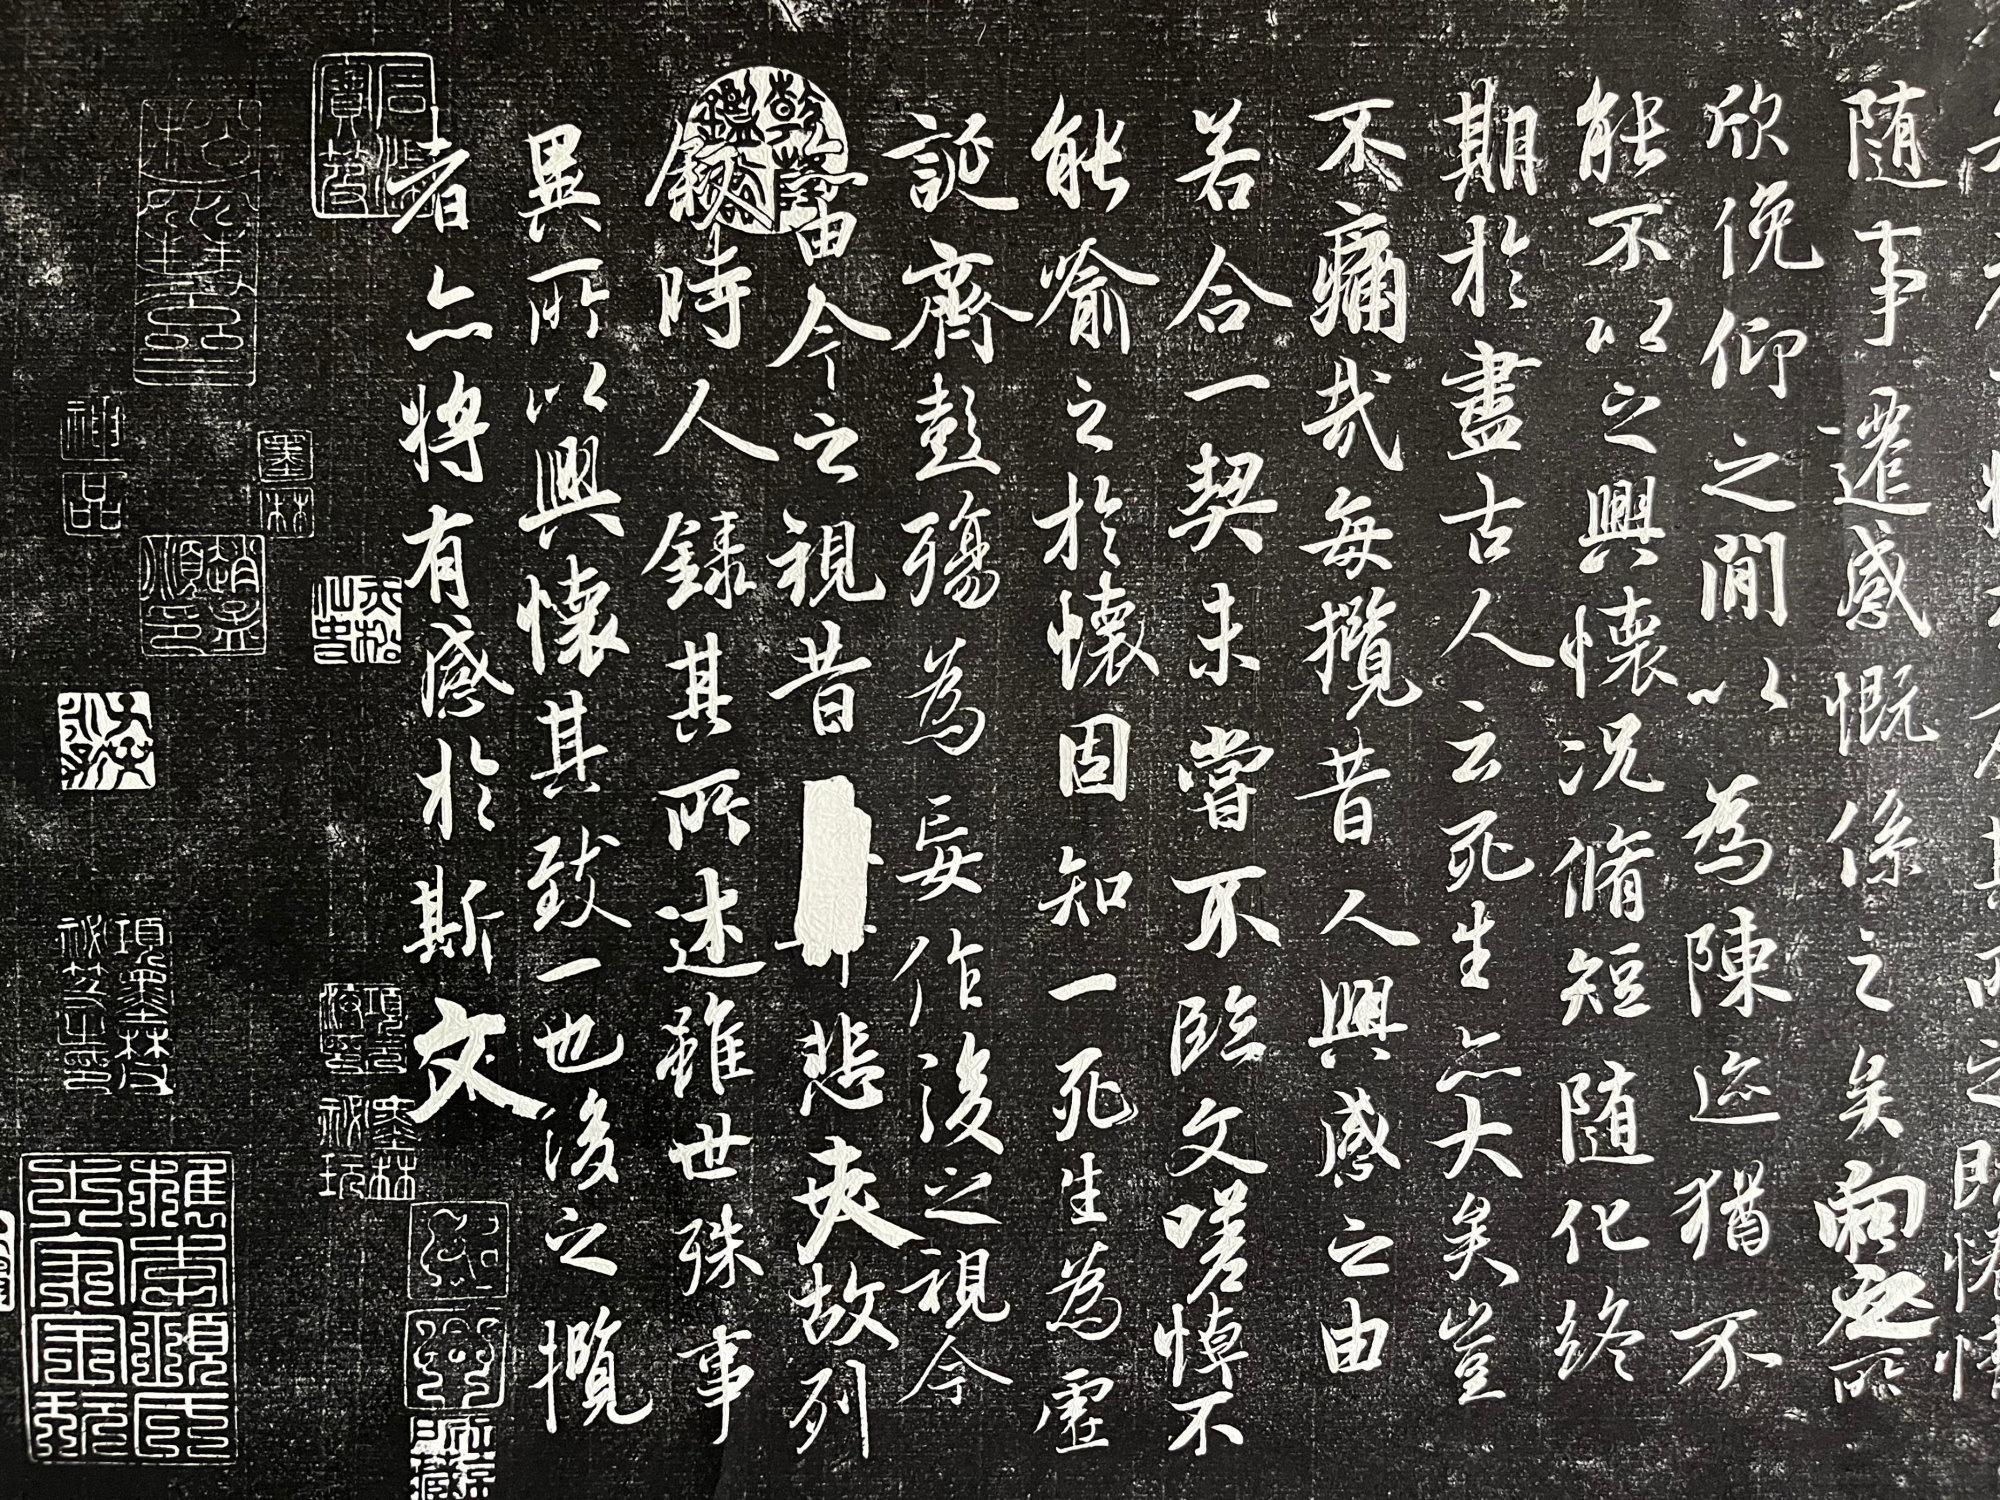 随事遷感慨係之矣向之所
欣俛仰之閒以為陳迹猶不
能不以之興懷況脩短随化終
期於盡古人云死生亦大矣豈
不痛哉每攬昔人興感之由
若合一契未嘗不臨文嗟悼不
能喻之於懷固知一死生為虛
誕齊彭殤為妄作後之視今
亦由今之視昔悲夫故列
敘時人錄其所述雖世殊事
異所以興懷其致一也後之攬
者亦將有感於斯文
神品
墨林
項墨林父
祕笈之印
墨林
祕玩